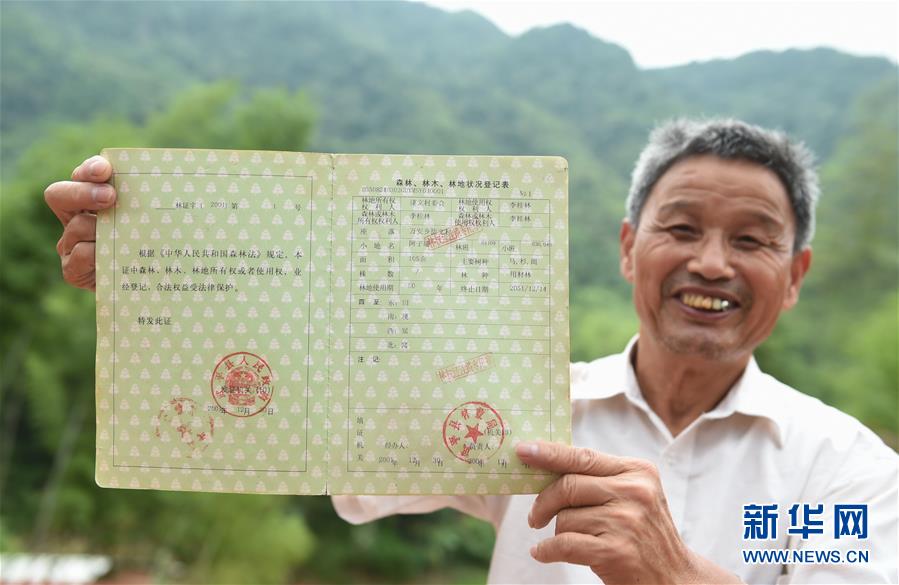 林证字（2001）第 1 号
根据《中华人民共和国森林法》规定，本
证中森林、林木、林地所有权或者使用权，业
经登记，合法权益受法律保护。
特发此证
发证机关（印）
2001年12月 日
森林、林木、林地状况登记表
№1
林地所有权权利人 捷文村委会 林地使用权权利人 李桂林
森林或林木所有权权利人 李桂林 森林或林木使用权权利人 李桂林
座落 万安乡捷文村
小地名 林班 小班
面积 105亩 主要树种 马,杉,阔
株数 林种 用材林
林地使用期 50 年 终止日期 2051/12/14
四至 东:田
南:
西:
北:
注记:
填证机关
(机关印)
经办人: 负责人:
2001年12月30日 2001年12月
新华网
WWW.NEWS.CN